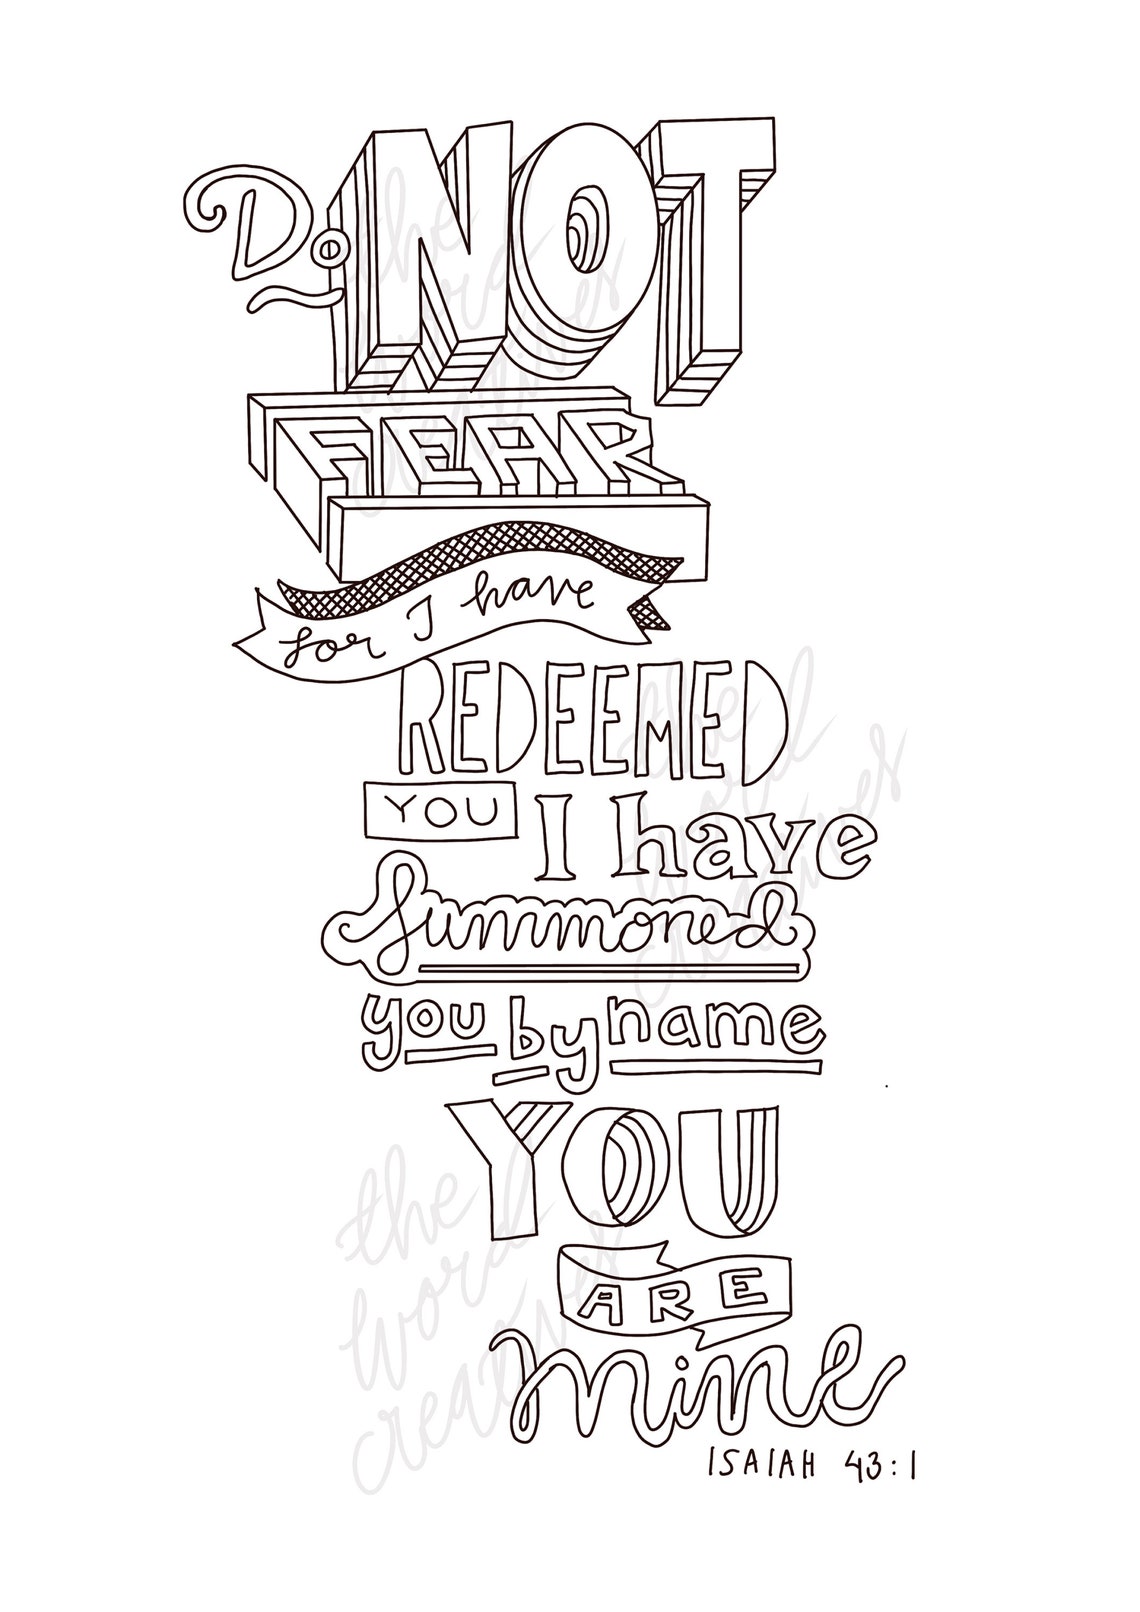 Do NOT
FEAR
for I have
REDEEMED
YOU I have
Summoned
you by name
YOU
ARE
mine
ISAIAH 43:1
the
word
creatives
the
word
creatives
the
word
creatives